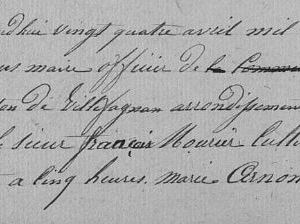 dhui vingt quatre avril mil
us maire officier de la Comm
on de Villefagnan arrondissemen
le sieur françois Mourier cult
t a cinq heures. marie Arnon